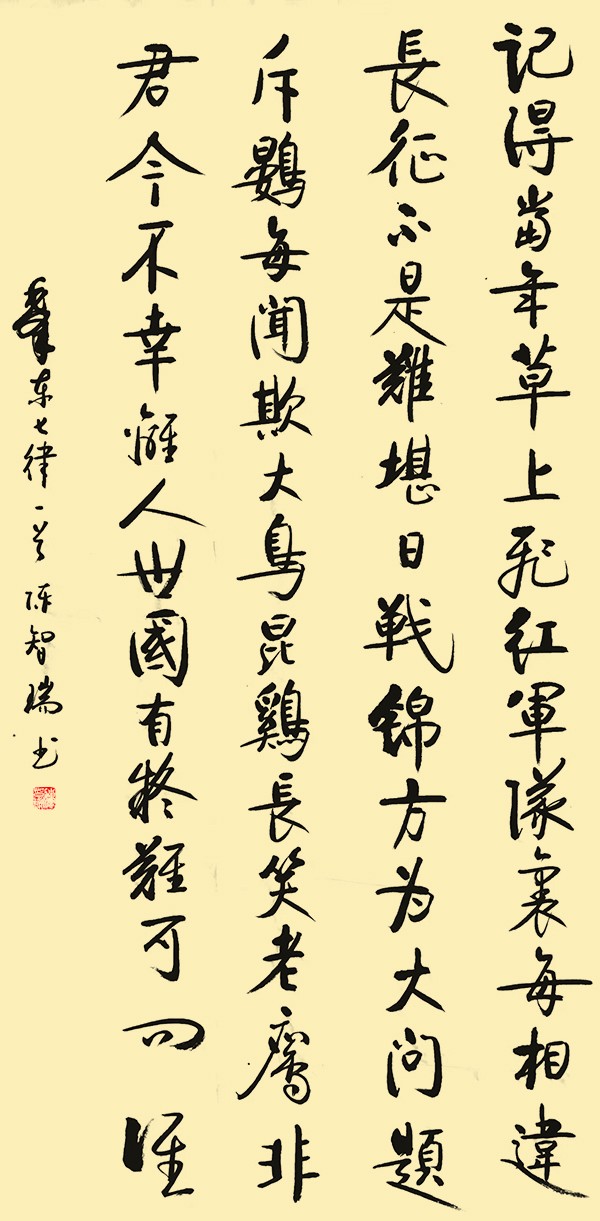 记得當年草上飛红軍隊裏每相違
長征不是難堪日戦錦方为大问題
斥鷃每闻欺大鳥昆鷄長笑老鷹非
君今不幸離人世國有疑難可问谁
东七律一首陈智瑞书